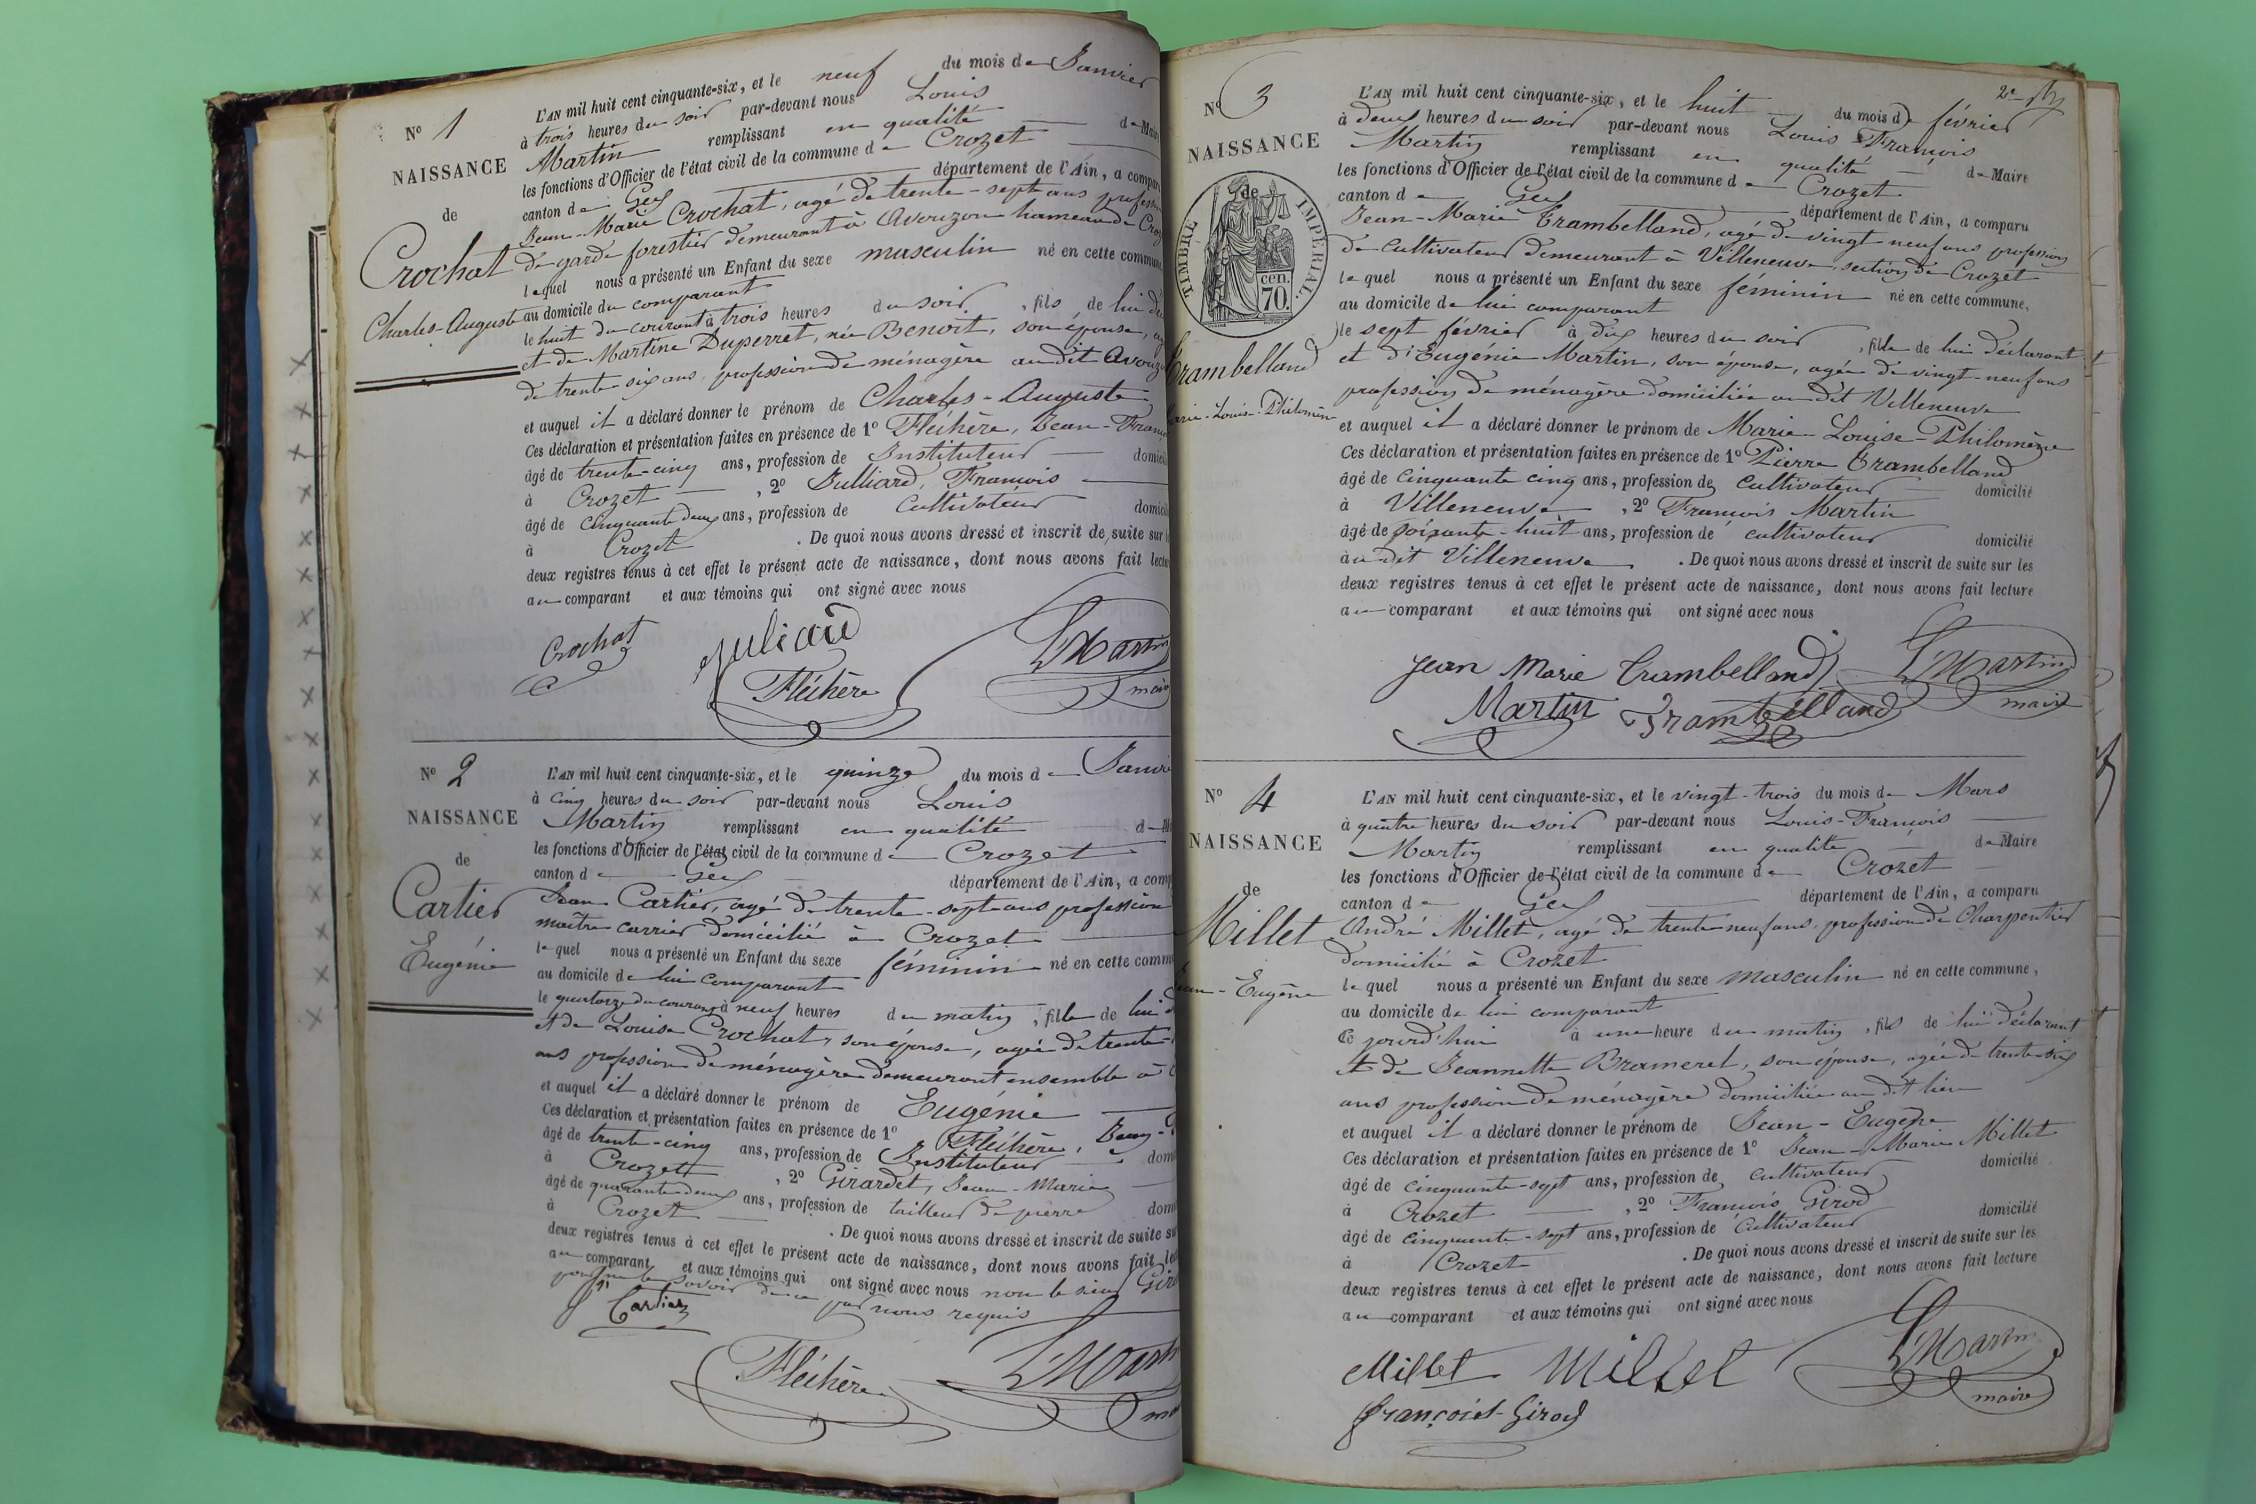 N° 1
NAISSANCE
de
Crochat
Charles-Auguste
L'AN mil huit cent cinquante-six, et le neuf du mois de Janvier
à trois heures du soir par-devant nous Louis
Martin remplissant en qualité de Maire
les fonctions d'Officier de l'état civil de la commune de Crozet
canton de Gex département de l'Ain, a comparu
Jean-Marie Crochat, agé de trente-sept ans
de garde forestier demeurant à Avouzon hameau de
lequel nous a présenté un Enfant du sexe masculin né en cette commune
au domicile du comparant
le huit du courant à trois heures du soir, fils de lui
et de Martine Duperret, née Benoit, son épouse,
de trente-six ans profession de ménagère au dit
et auquel il a déclaré donner le prénom de Charles-Auguste
Ces déclaration et présentation faites en présence de 1° Fléchère, Jean-
âgé de trente-cinq ans, profession de Instituteur
à Crozet, 2° Julliard, François
âgé de cinquante deux ans, profession de Cultivateur
à Crozet. De quoi nous avons dressé et inscrit de suite sur
deux registres tenus à cet effet le présent acte de naissance, dont nous avons fait
au comparant et aux témoins qui ont signé avec nous
Crochat Juliard L. Martin
Fléchère maire
N° 2
NAISSANCE
de
Cartier
Eugénie
L'AN mil huit cent cinquante-six, et le quinze du mois de
à cinq heures du soir par-devant nous Louis
Martin remplissant en qualité
les fonctions d'Officier de l'état civil de la commune de Crozet
canton de Gex département de l'Ain, a
Jean Cartier, agé de trente-sept ans profession
maître carrier domicilié à Crozet
lequel nous a présenté un Enfant du sexe féminin né en cette
au domicile de lui comparant
le quatorze du courant à neuf heures du matin, fille de lui
et de Louise Crochat, son épouse, agée de trente-
ans profession de ménagère demeurant ensemble à
et auquel il a déclaré donner le prénom de Eugénie
Ces déclaration et présentation faites en présence de 1° Fléchère, Jean-
âgé de trente-cinq ans, profession de Instituteur
à Crozet, 2° Girardet, Jean-Marie
âgé de quarante-deux ans, profession de tailleur de pierre
à Crozet. De quoi nous avons dressé et inscrit de suite
deux registres tenus à cet effet le présent acte de naissance, dont nous avons fait
au comparant et aux témoins qui ont signé avec nous non le sieur
pour ne le savoir de ce par nous requis
Cartier
Fléchère
N° 3
NAISSANCE
de
TIMBRE IMPÉRIAL.
70. cen.
Trambelland
L'AN mil huit cent cinquante-six, et le huit du mois de février
à deux heures du soir par-devant nous Louis François
Martin remplissant en qualité de Maire
les fonctions d'Officier de l'état civil de la commune de Crozet
canton de Gex département de l'Ain, a comparu
Jean-Marie Trambelland, agé de vingt-neuf ans profession
de cultivateur demeurant à Villeneuve, section de Crozet
lequel nous a présenté un Enfant du sexe féminin né en cette commune,
au domicile de lui comparant
le sept février à dix heures du soir, fille de lui déclarant
et d'Eugénie Martin, son épouse, agée de vingt-neuf ans
profession de ménagère domiciliée au dit Villeneuve
et auquel il a déclaré donner le prénom de Marie-Louise-Philomène
Ces déclaration et présentation faites en présence de 1° Pierre Trambelland
âgé de cinquante cinq ans, profession de cultivateur domicilié
à Villeneuve, 2° François Martin
âgé de soixante-huit ans, profession de cultivateur domicilié
à au dit Villeneuve. De quoi nous avons dressé et inscrit de suite sur les
deux registres tenus à cet effet le présent acte de naissance, dont nous avons fait lecture
au comparant et aux témoins qui ont signé avec nous
Jean Marie Trambelland L. Martin
Martin Trambelland maire
N° 4
NAISSANCE
de
Millet
L'AN mil huit cent cinquante-six, et le vingt-trois du mois de Mars
à quatre heures du soir par-devant nous Louis-François
Martin remplissant en qualité de Maire
les fonctions d'Officier de l'état civil de la commune de Crozet
canton de Gex département de l'Ain, a comparu
André Millet, agé de trente neuf ans, profession de Charpentier
domicilié à Crozet
lequel nous a présenté un Enfant du sexe masculin né en cette commune,
au domicile de lui comparant
Ce jourd'hui à une heure du matin, fils de lui déclarant
et de Jeannette Brameret, son épouse, agée de trente-six
ans profession de ménagère domiciliée au dit lieu
et auquel il a déclaré donner le prénom de Jean-Eugène
Ces déclaration et présentation faites en présence de 1° Jean-Marie Millet
âgé de cinquante-sept ans, profession de cultivateur domicilié
à Crozet, 2° François Girod
âgé de cinquante-sept ans, profession de Cultivateur domicilié
à Crozet. De quoi nous avons dressé et inscrit de suite sur les
deux registres tenus à cet effet le présent acte de naissance, dont nous avons fait lecture
au comparant et aux témoins qui ont signé avec nous
Millet Millet L. Martin
Françoist Girod maire